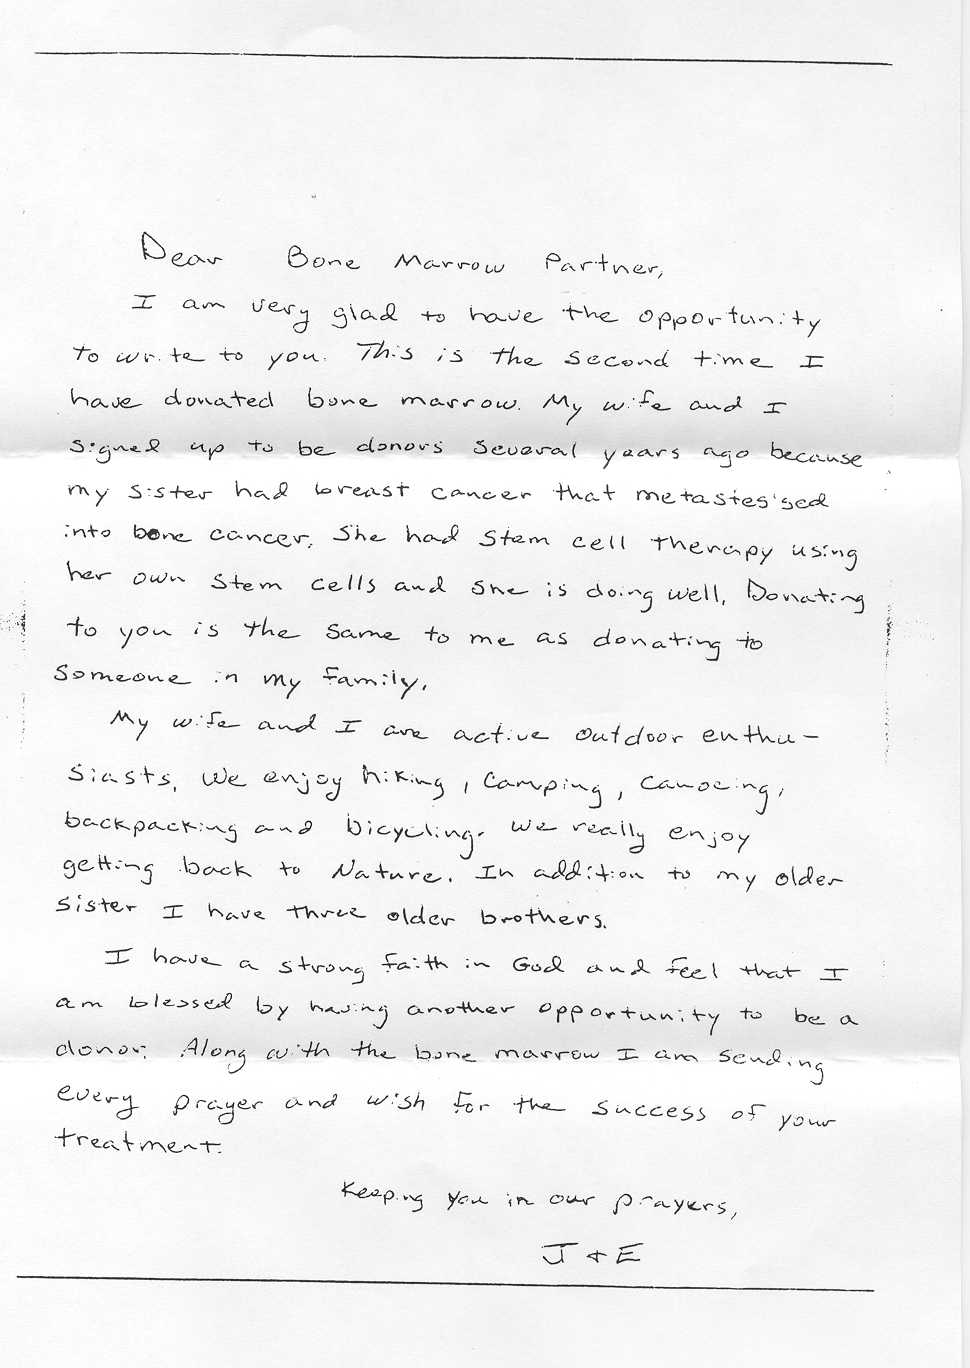 Dear Bone Marrow Partner,
I am very glad to have the opportunity
to write to you. This is the second time I
have donated bone marrow. My wife and I
signed up to be donors several years ago because
my sister had breast cancer that metastes'sed
into bone cancer. She had stem cell therapy using
her own stem cells and she is doing well. Donating
to you is the same to me as donating to
someone in my family.
My wife and I are active outdoor enthu-
siasts. We enjoy hiking, camping, canoeing,
backpacking and bicycling. We really enjoy
getting back to Nature. In addition to my older
sister I have three older brothers.
I have a strong faith in God and feel that I
am blessed by having another opportunity to be a
donor. Along with the bone marrow I am sending
every prayer and wish for the success of your
treatment.
Keeping you in our prayers,
J + E